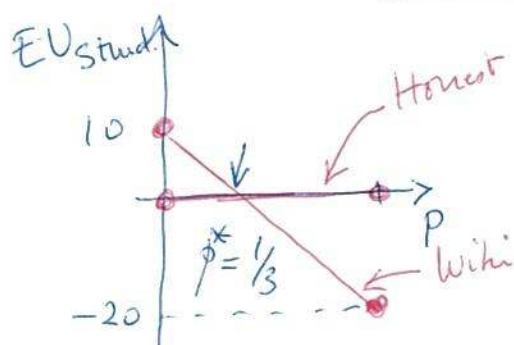 EU Stud.
Honest
10
p
p* = 1/3
Wiki
-20